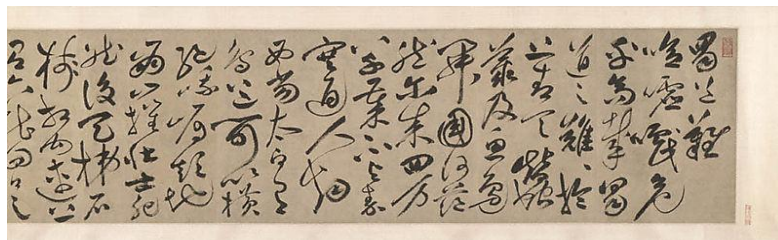 蜀道難
噫嘘嚱危
乎高哉蜀
道之難難於
上青天蠶
叢及魚鳧
開國何茫
然尔来四万
八千歲不与秦
塞通人烟
西當太白有
鳥道可以橫
絶峨嵋巔地
崩山摧壯士死
然後天梯石
棧相鉤連上
有六龍回日之